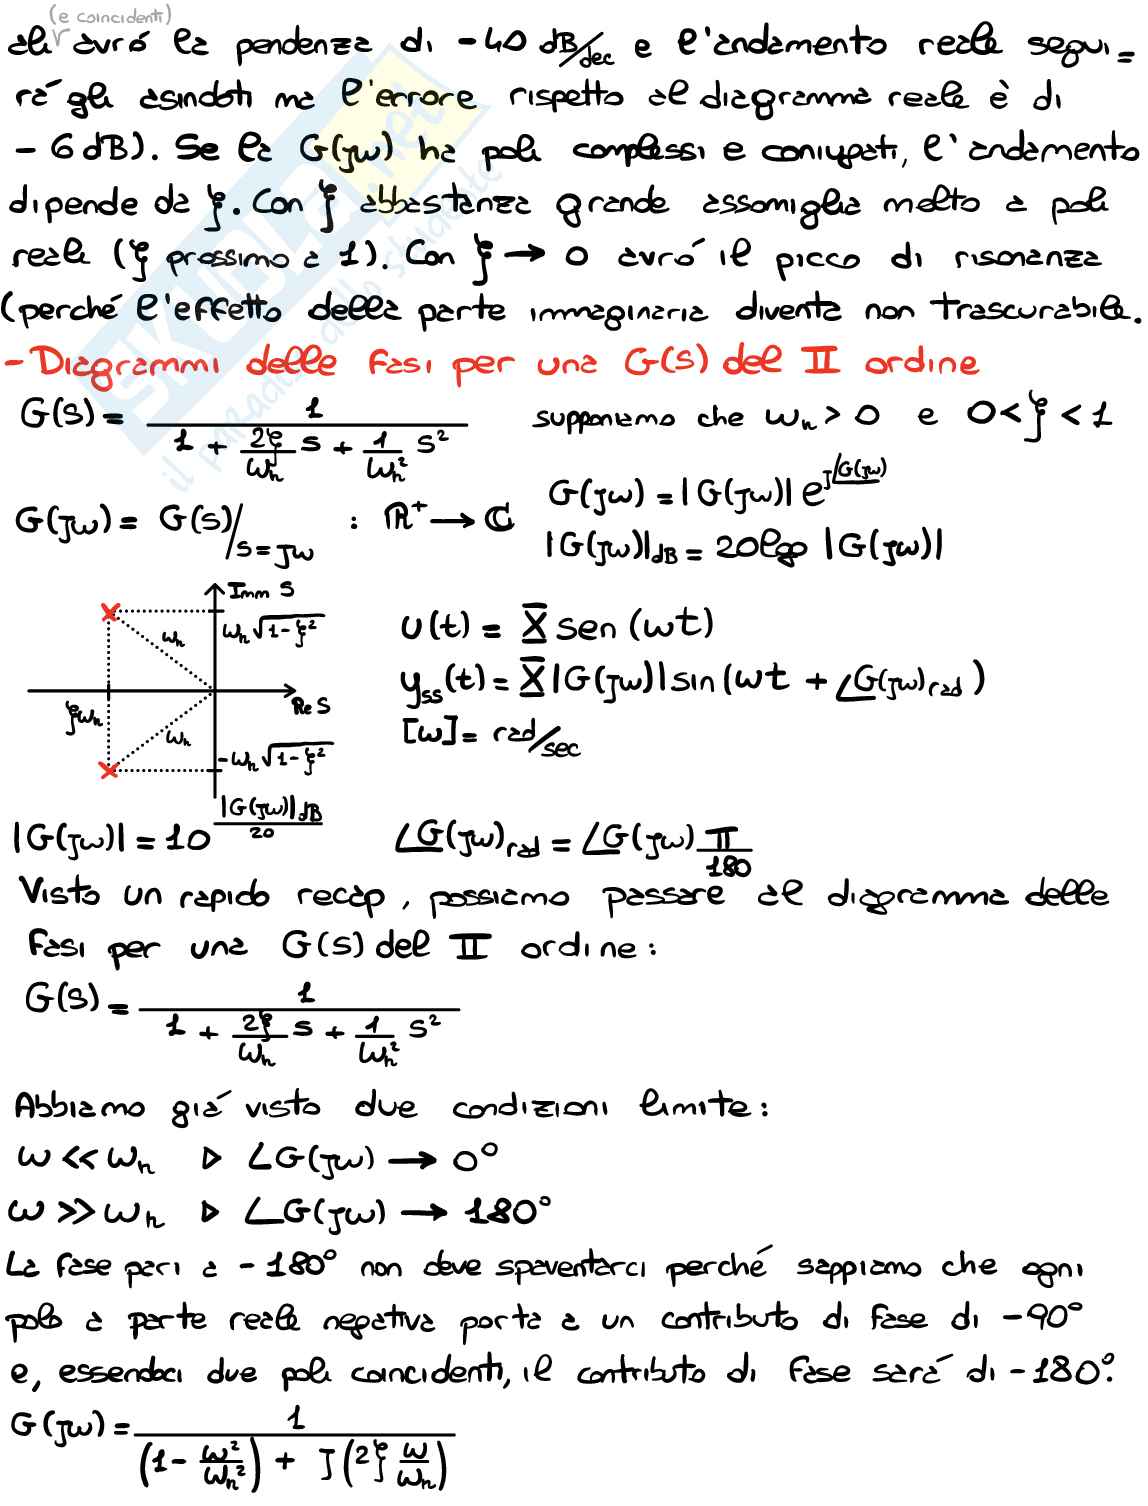 (e coincidenti)
ali avró la pendenza di -40 dB/dec e l'andamento reale segui=
rá gli asindoti ma l'errore rispetto al diagramma reale è di
- 6 dB). Se la G(jω) ha poli complessi e coniugati, l'andamento
dipende da ξ. Con ξ abbastanza grande assomiglia molto a poli
reali (ξ prossimo a 1). Con ξ → 0 avró il picco di risonanza
(perché l'effetto della parte immaginaria diventa non trascurabile.
- Diagrammi delle fasi per una G(s) del II ordine
G(s) = 1 / (1 + 2ξ/ωn s + 1/ωn² s²) supponiamo che ωn > 0 e 0 < ξ < 1
G(jω) = G(s)/s=jω : ℝ⁺ → ℂ G(jω) = |G(jω)| e^j∠G(jω)
|G(jω)|dB = 20log |G(jω)|
Imm s
ωn√1-ξ²
ωn
Re s
ξωn
ωn
-ωn√1-ξ²
u(t) = X̄ sen (ωt)
yss(t) = X̄ |G(jω)| sin (ωt + ∠G(jω)rad)
[ω] = rad/sec
|G(jω)| = 10^(|G(jω)|dB / 20) ∠G(jω)rad = ∠G(jω) π/180
Visto un rapido recap, possiamo passare al diagramma delle
fasi per una G(s) del II ordine:
G(s) = 1 / (1 + 2ξ/ωn s + 1/ωn² s²)
Abbiamo giá visto due condizioni limite:
ω << ωn ▷ ∠G(jω) → 0°
ω >> ωn ▷ ∠G(jω) → 180°
La fase pari a -180° non deve spaventarci perché sappiamo che ogni
polo a parte reale negativa porta a un contributo di fase di -90°
e, essendoci due poli coincidenti, il contributo di fase sará di -180°.
G(jω) = 1 / ((1 - ω²/ωn²) + j(2ξ ω/ωn))
SKUOLA.net
il paradiso dello studente